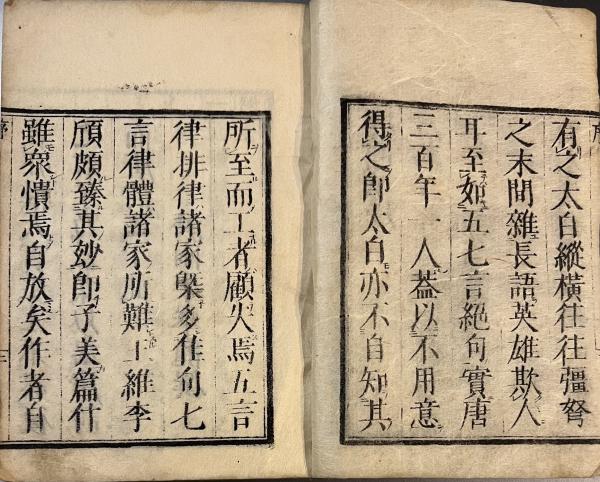 有之太白縱橫往往彊弩
之末間雜長語英雄欺人
耳至如五七言絕句實唐
三百年一人蓋以不用意
得之即太白亦不自知其
所至而工者顧失焉五言
律排律諸家槩多佳句七
言律體諸家所難王維李
頎頗臻其妙即子美篇什
雖衆憒焉自放矣作者自
序